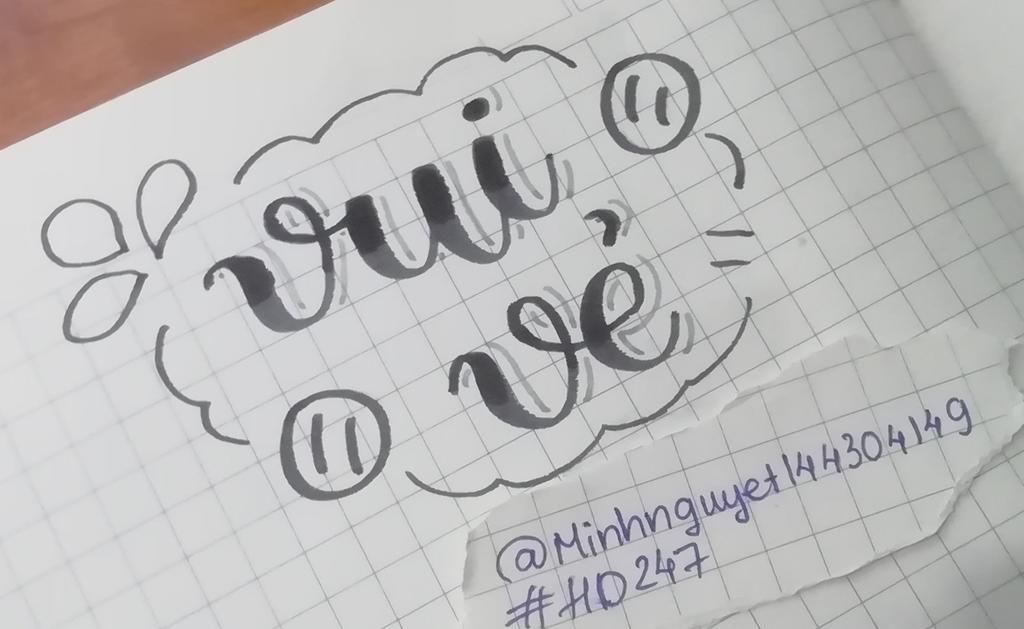 vui
vẻ
@Minhnguyet144304149
#HD247